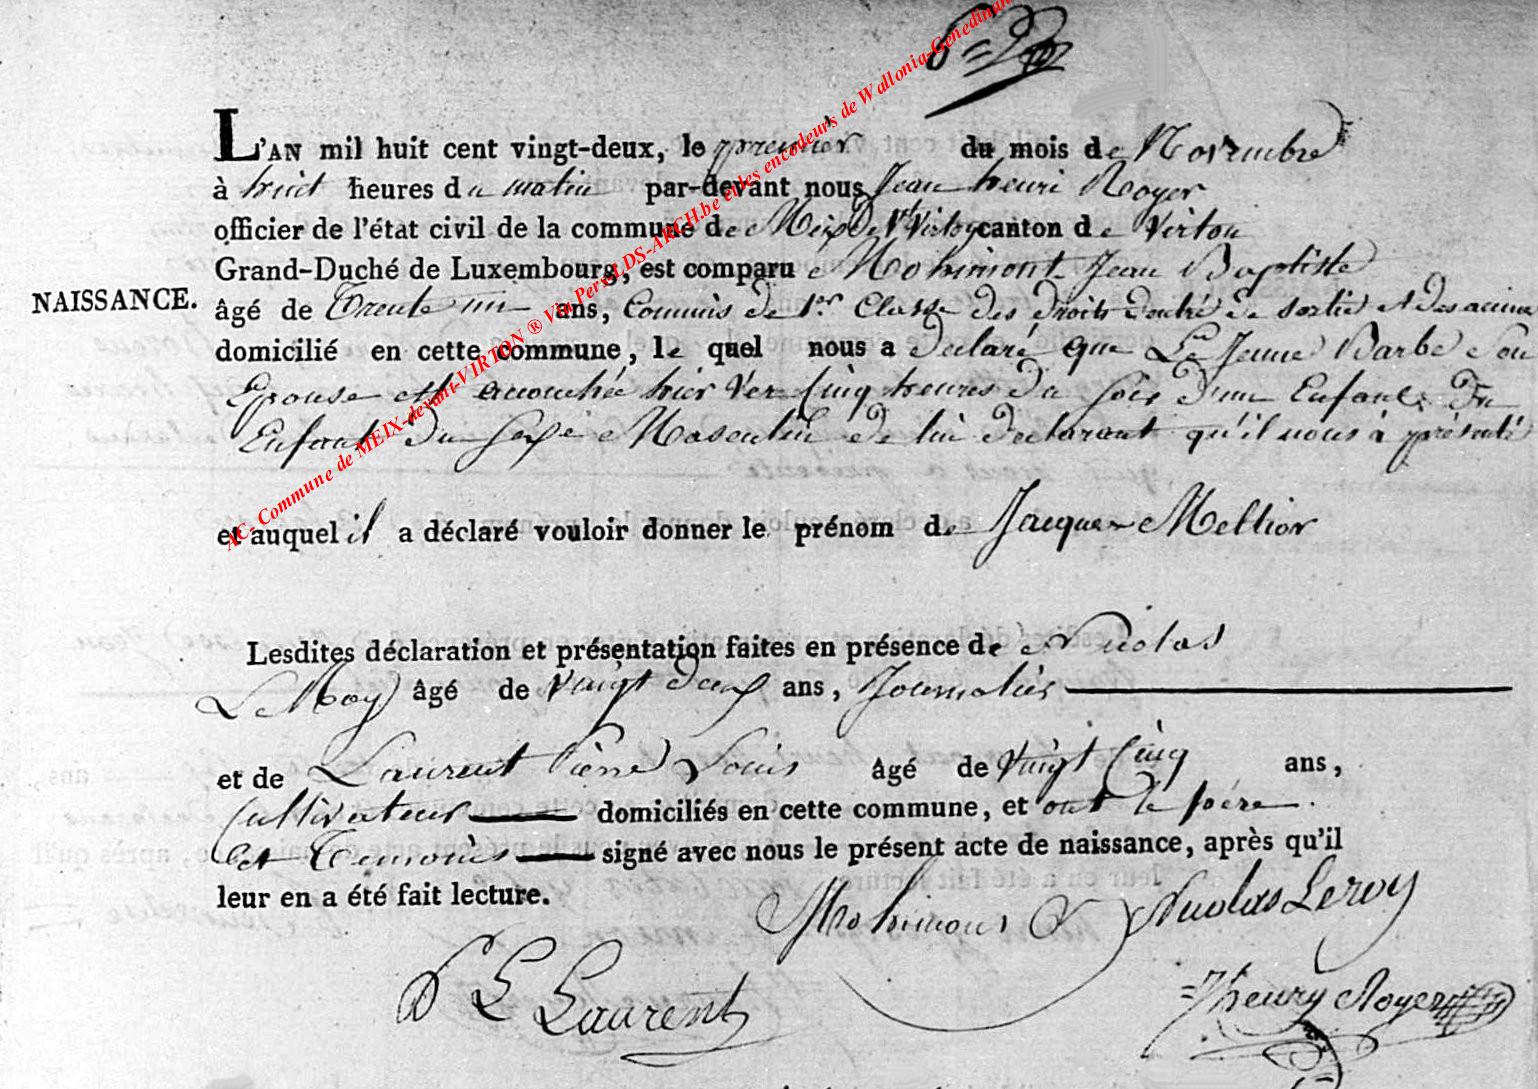 L'AN mil huit cent vingt-deux, le premier du mois de Novembre
à huit heures du matin par-devant nous Jean henri Royer
officier de l'état civil de la commune de Meix Devt Virton canton de Virton
Grand-Duché de Luxembourg, est comparu Mohimont Jean Baptiste
NAISSANCE.
âgé de Trente un ans, Commis de 1er Classe des droits d'entré de sortie et des
domicilié en cette commune, le quel nous a declaré que Le Jeune Barbe Son
Epouse est accouchée hier Ver Cinq heures du Soir d'un Enfant Un
Enfant du Sexe Masculin de lui declarant qu'il nous à présenté
et auquel il a déclaré vouloir donner le prénom de Jacques Mellior
Lesdites déclaration et présentation faites en présence de Nicolas
LeRoy âgé de Vaingt deux ans, Journalier
et de Laurent Pierre Louis âgé de Vaingt Cinq ans,
Cultivateur domiciliés en cette commune, et ont le père
et Temoins signé avec nous le présent acte de naissance, après qu'il
leur en a été fait lecture.
Mohimont Nicolas Leroy
P L Laurent
Jhenry Royer
AC- Commune de MEIX-devant-VIRTON ® Via Pers-LDS-ARCH.be et les encodeurs de Wallonia-Genedinan